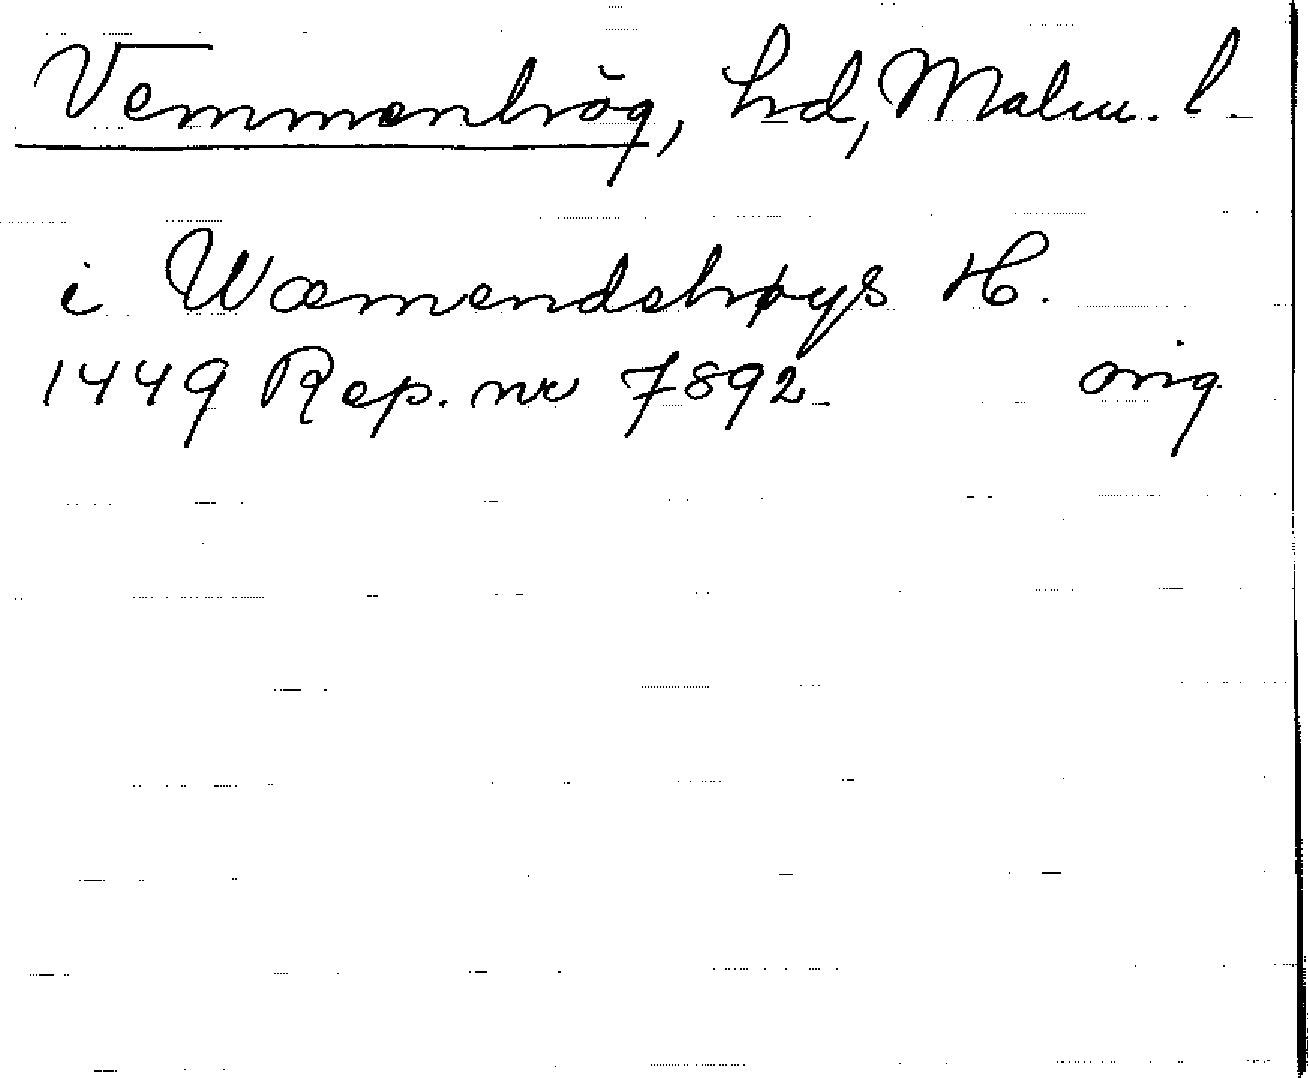 Vemmenhög, hd, Malm. l.
i Wæmendehøys H.
1449 Rep. nr 7892 orig